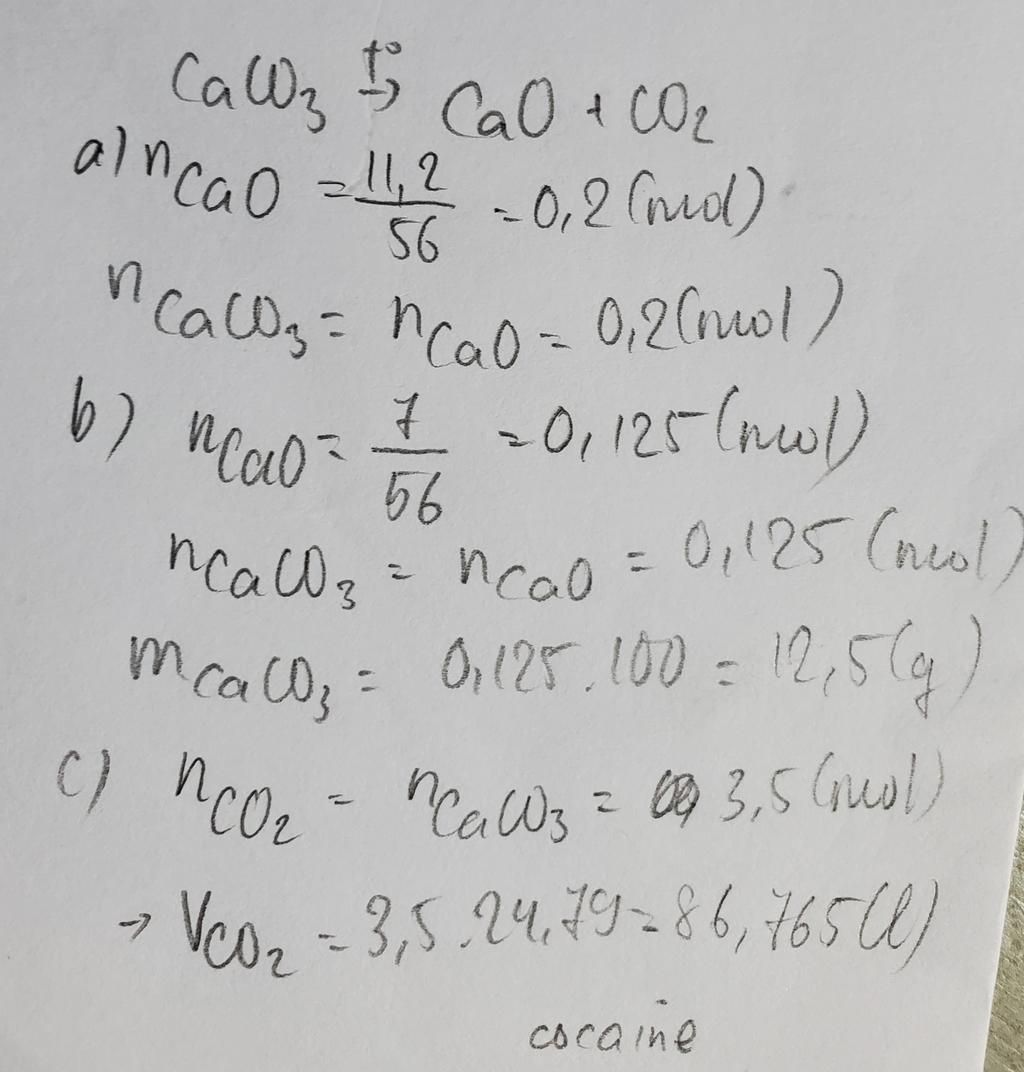 CaCO₃ t°→ CaO + CO₂
a) nCaO = 11,2/56 = 0,2 (mol)
nCaCO₃ = nCaO = 0,2 (mol)
b) nCaO = 7/56 = 0,125 (mol)
nCaCO₃ = nCaO = 0,125 (mol)
mCaCO₃ = 0,125.100 = 12,5 (g)
c) nCO₂ = nCaCO₃ = 3,5 (mol)
→ VCO₂ = 3,5.24,79 = 86,765 (l)
cocaine